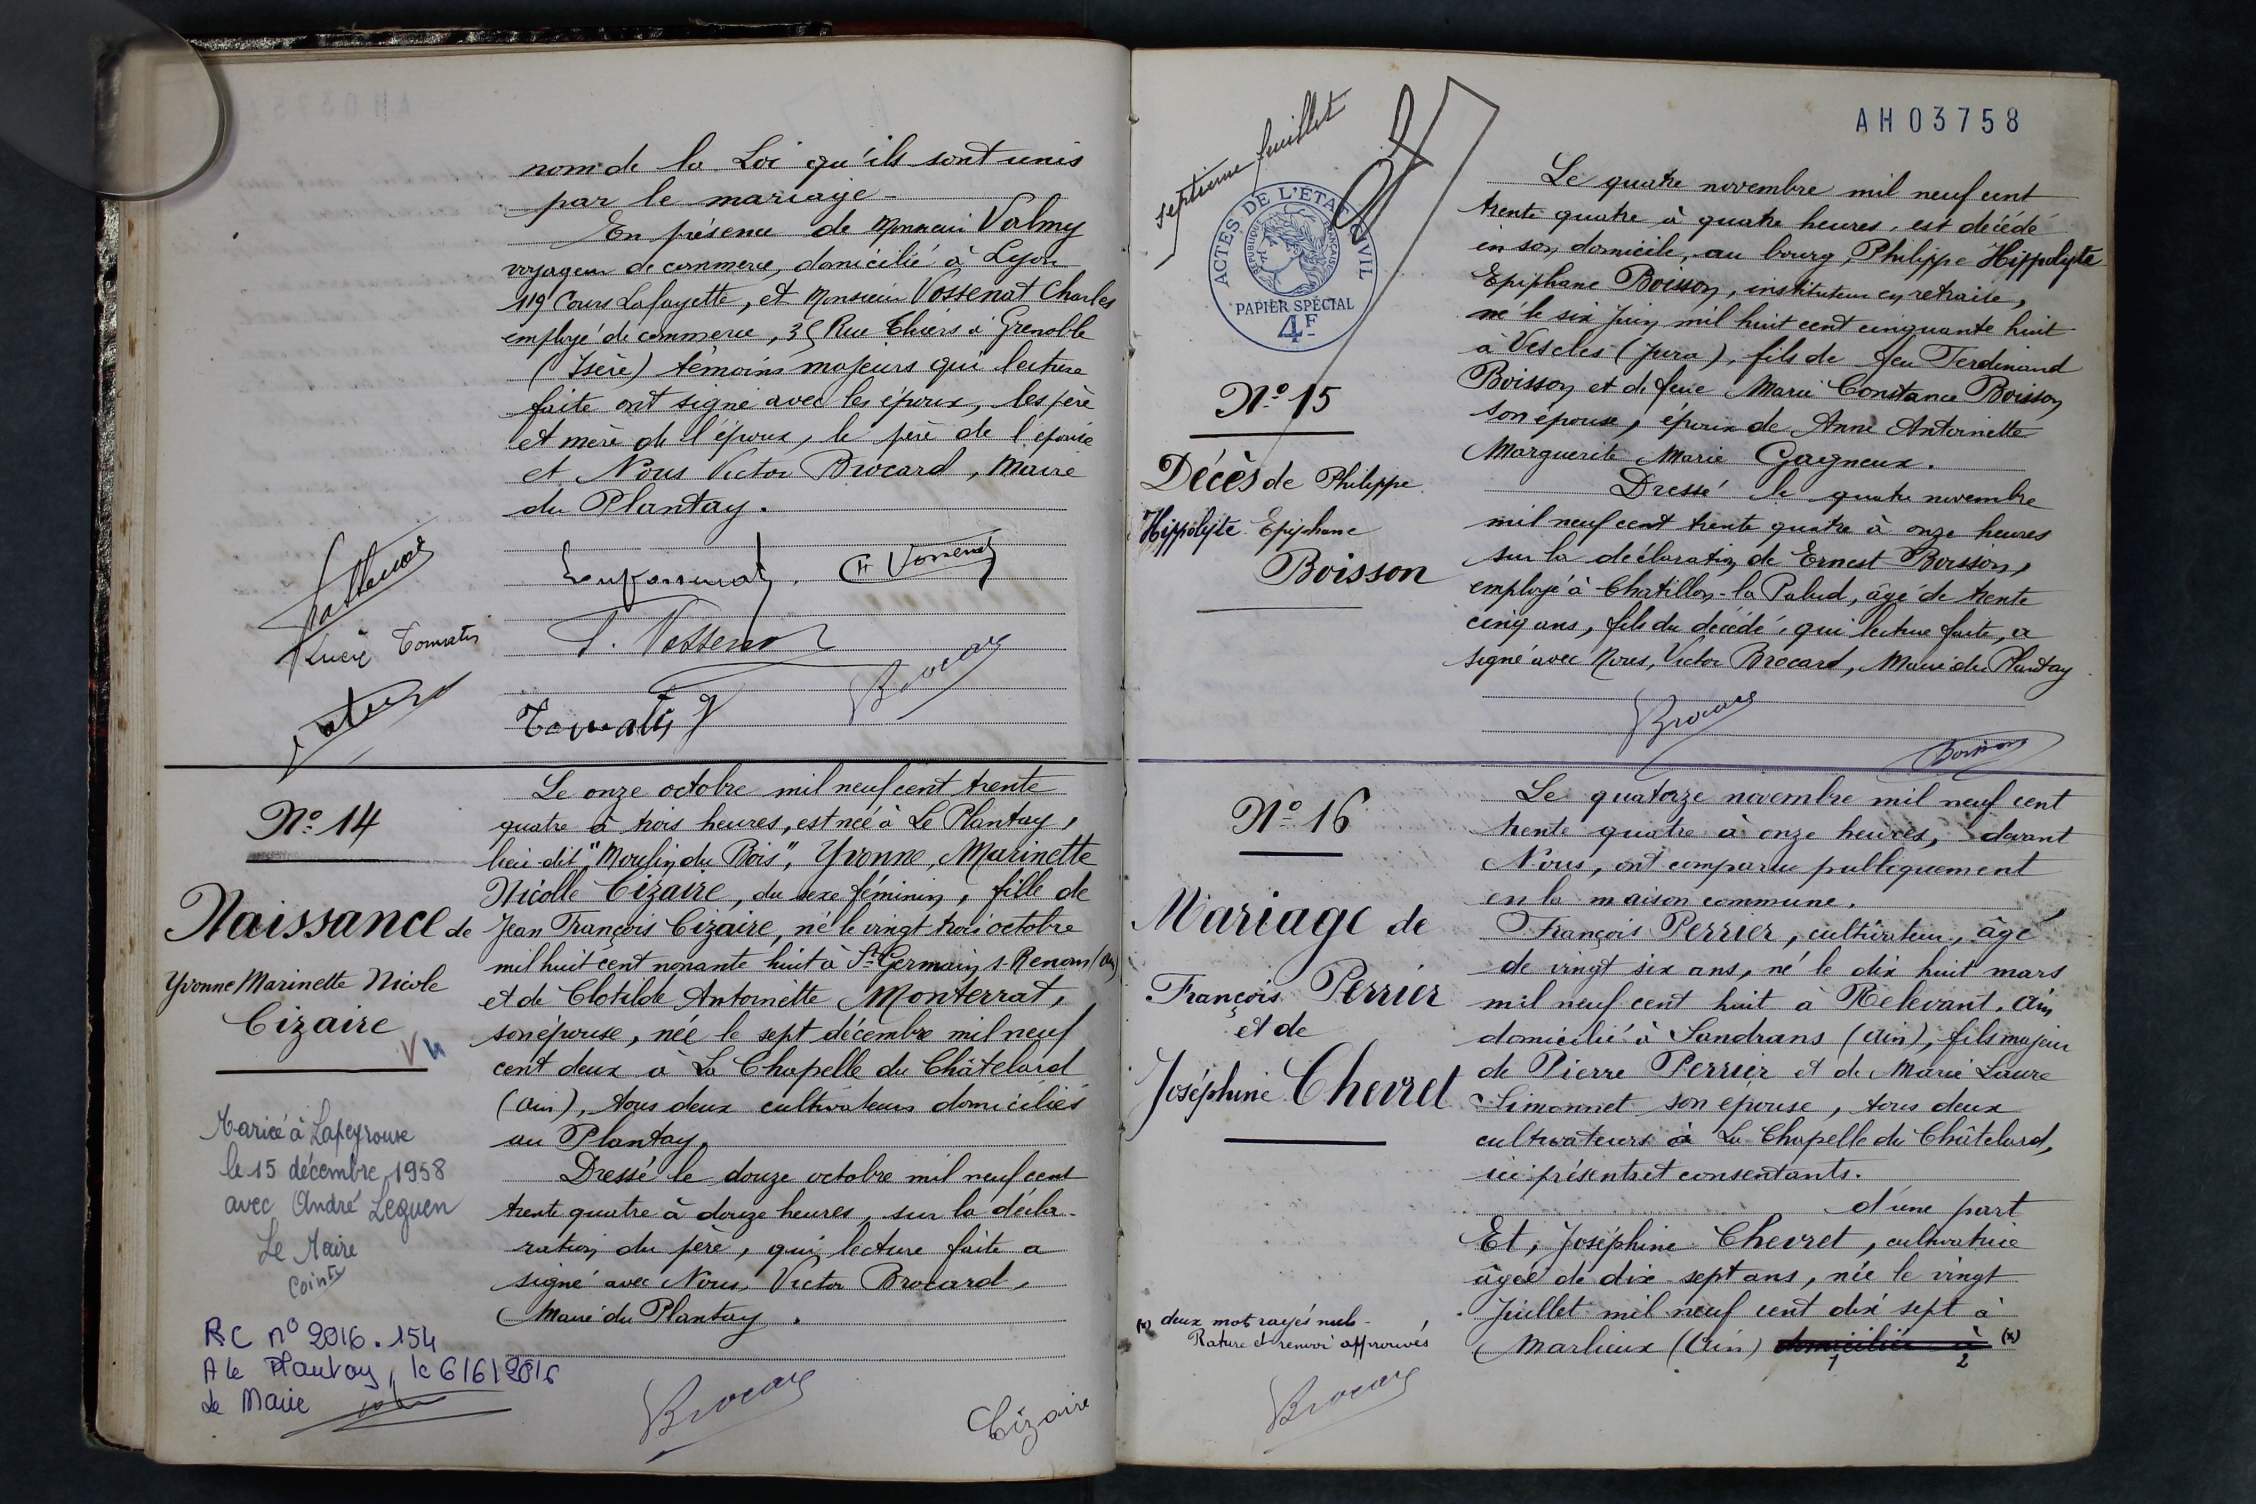 nom de la Loi qu'ils sont unis
par le mariage -
En présence de Monsieur Valmy
voyageur de commerce, domicilié à Lyon
119 Cours Lafayette, et Monsieur Vossenat Charles
employé de commerce, 35 Rue Thiers à Grenoble
(Isère) témoins majeurs qui lecture
faite ont signé avec les époux, les père
et mère de l'époux, le père de l'épouse
et Nous Victor Brocard, Maire
du Plantay.
Ch Vossenat
Lucie Tomatis
Vossenat
Brocard
Tomatis
Nº 14
Naissance de
Yvonne Marinette Nicole
Cizaire
Vu
Mariée à Lapeyrouse
le 15 décembre 1958
avec André Leguen
Le Maire
Cointy
RC nº 2016.154
A le Plantay, le 6/6/2016
Le Maire
Le onze octobre mil neuf cent trente
quatre à trois heures, est née à Le Plantay,
lieu dit "Moulin du Bois", Yvonne, Marinette
Nicolle Cizaire, du sexe féminin, fille de
Jean François Cizaire, né le vingt trois octobre
mil huit cent nonante huit à St Germain s. Renom (Ain)
et de Clotilde Antoinette Monterrat,
son épouse, née le sept décembre mil neuf
cent deux à La Chapelle du Châtelard
(Ain), tous deux cultivateurs domiciliés
au Plantay.
Dressé le douze octobre mil neuf cent
trente quatre à douze heures, sur la décla-
ration du père, qui, lecture faite a
signé avec Nous, Victor Brocard,
Maire du Plantay.
Brocard
Cizaire
AH03758
septième feuillet
ACTES DE L'ÉTAT CIVIL
RÉPUBLIQUE FRANÇAISE
PAPIER SPÉCIAL
4F
Nº 15
Décès de Philippe
Hippolyte Epiphane
Boisson
Le quatre novembre mil neuf cent
trente quatre à quatre heures, est décédé
en son domicile, au bourg, Philippe Hippolyte
Epiphane Boisson, instituteur en retraite,
né le six juin mil huit cent cinquante huit
à Vescles (Jura), fils de feu Ferdinand
Boisson et de feue Marie Constance Boisson
son épouse, époux de Anne Antoinette
Marguerite Marie Gagneux.
Dressé le quatre novembre
mil neuf cent trente quatre à onze heures
sur la déclaration de Ernest Boisson,
employé à Chatillon-la Palud, âgé de trente
cinq ans, fils du décédé, qui lecture faite, a
signé avec Nous, Victor Brocard, Maire du Plantay
Brocard
Boisson
Nº 16
Mariage de
François Perrier
et de
Joséphine Chevret
(x) deux mots rayés nuls -
Rature et renvoi approuvés
Brocard
Le quatorze novembre mil neuf cent
trente quatre à onze heures, devant
Nous, ont comparu publiquement
en la maison commune.
François Perrier, cultivateur, âgé
de vingt six ans, né le dix huit mars
mil neuf cent huit à Relevant, Ain
domicilié à Sandrans (Ain), fils majeur
de Pierre Perrier et de Marie Laure
Simonnet son epouse, tous deux
cultivateurs à La Chapelle du Châtelard,
ici présents et consentants.
d'une part
Et, Joséphine Chevret, cultivatrice
âgée de dix-sept ans, née le vingt
Juillet mil neuf cent dix sept à
Marlieux (Ain) domiciliée à (x)
1 2